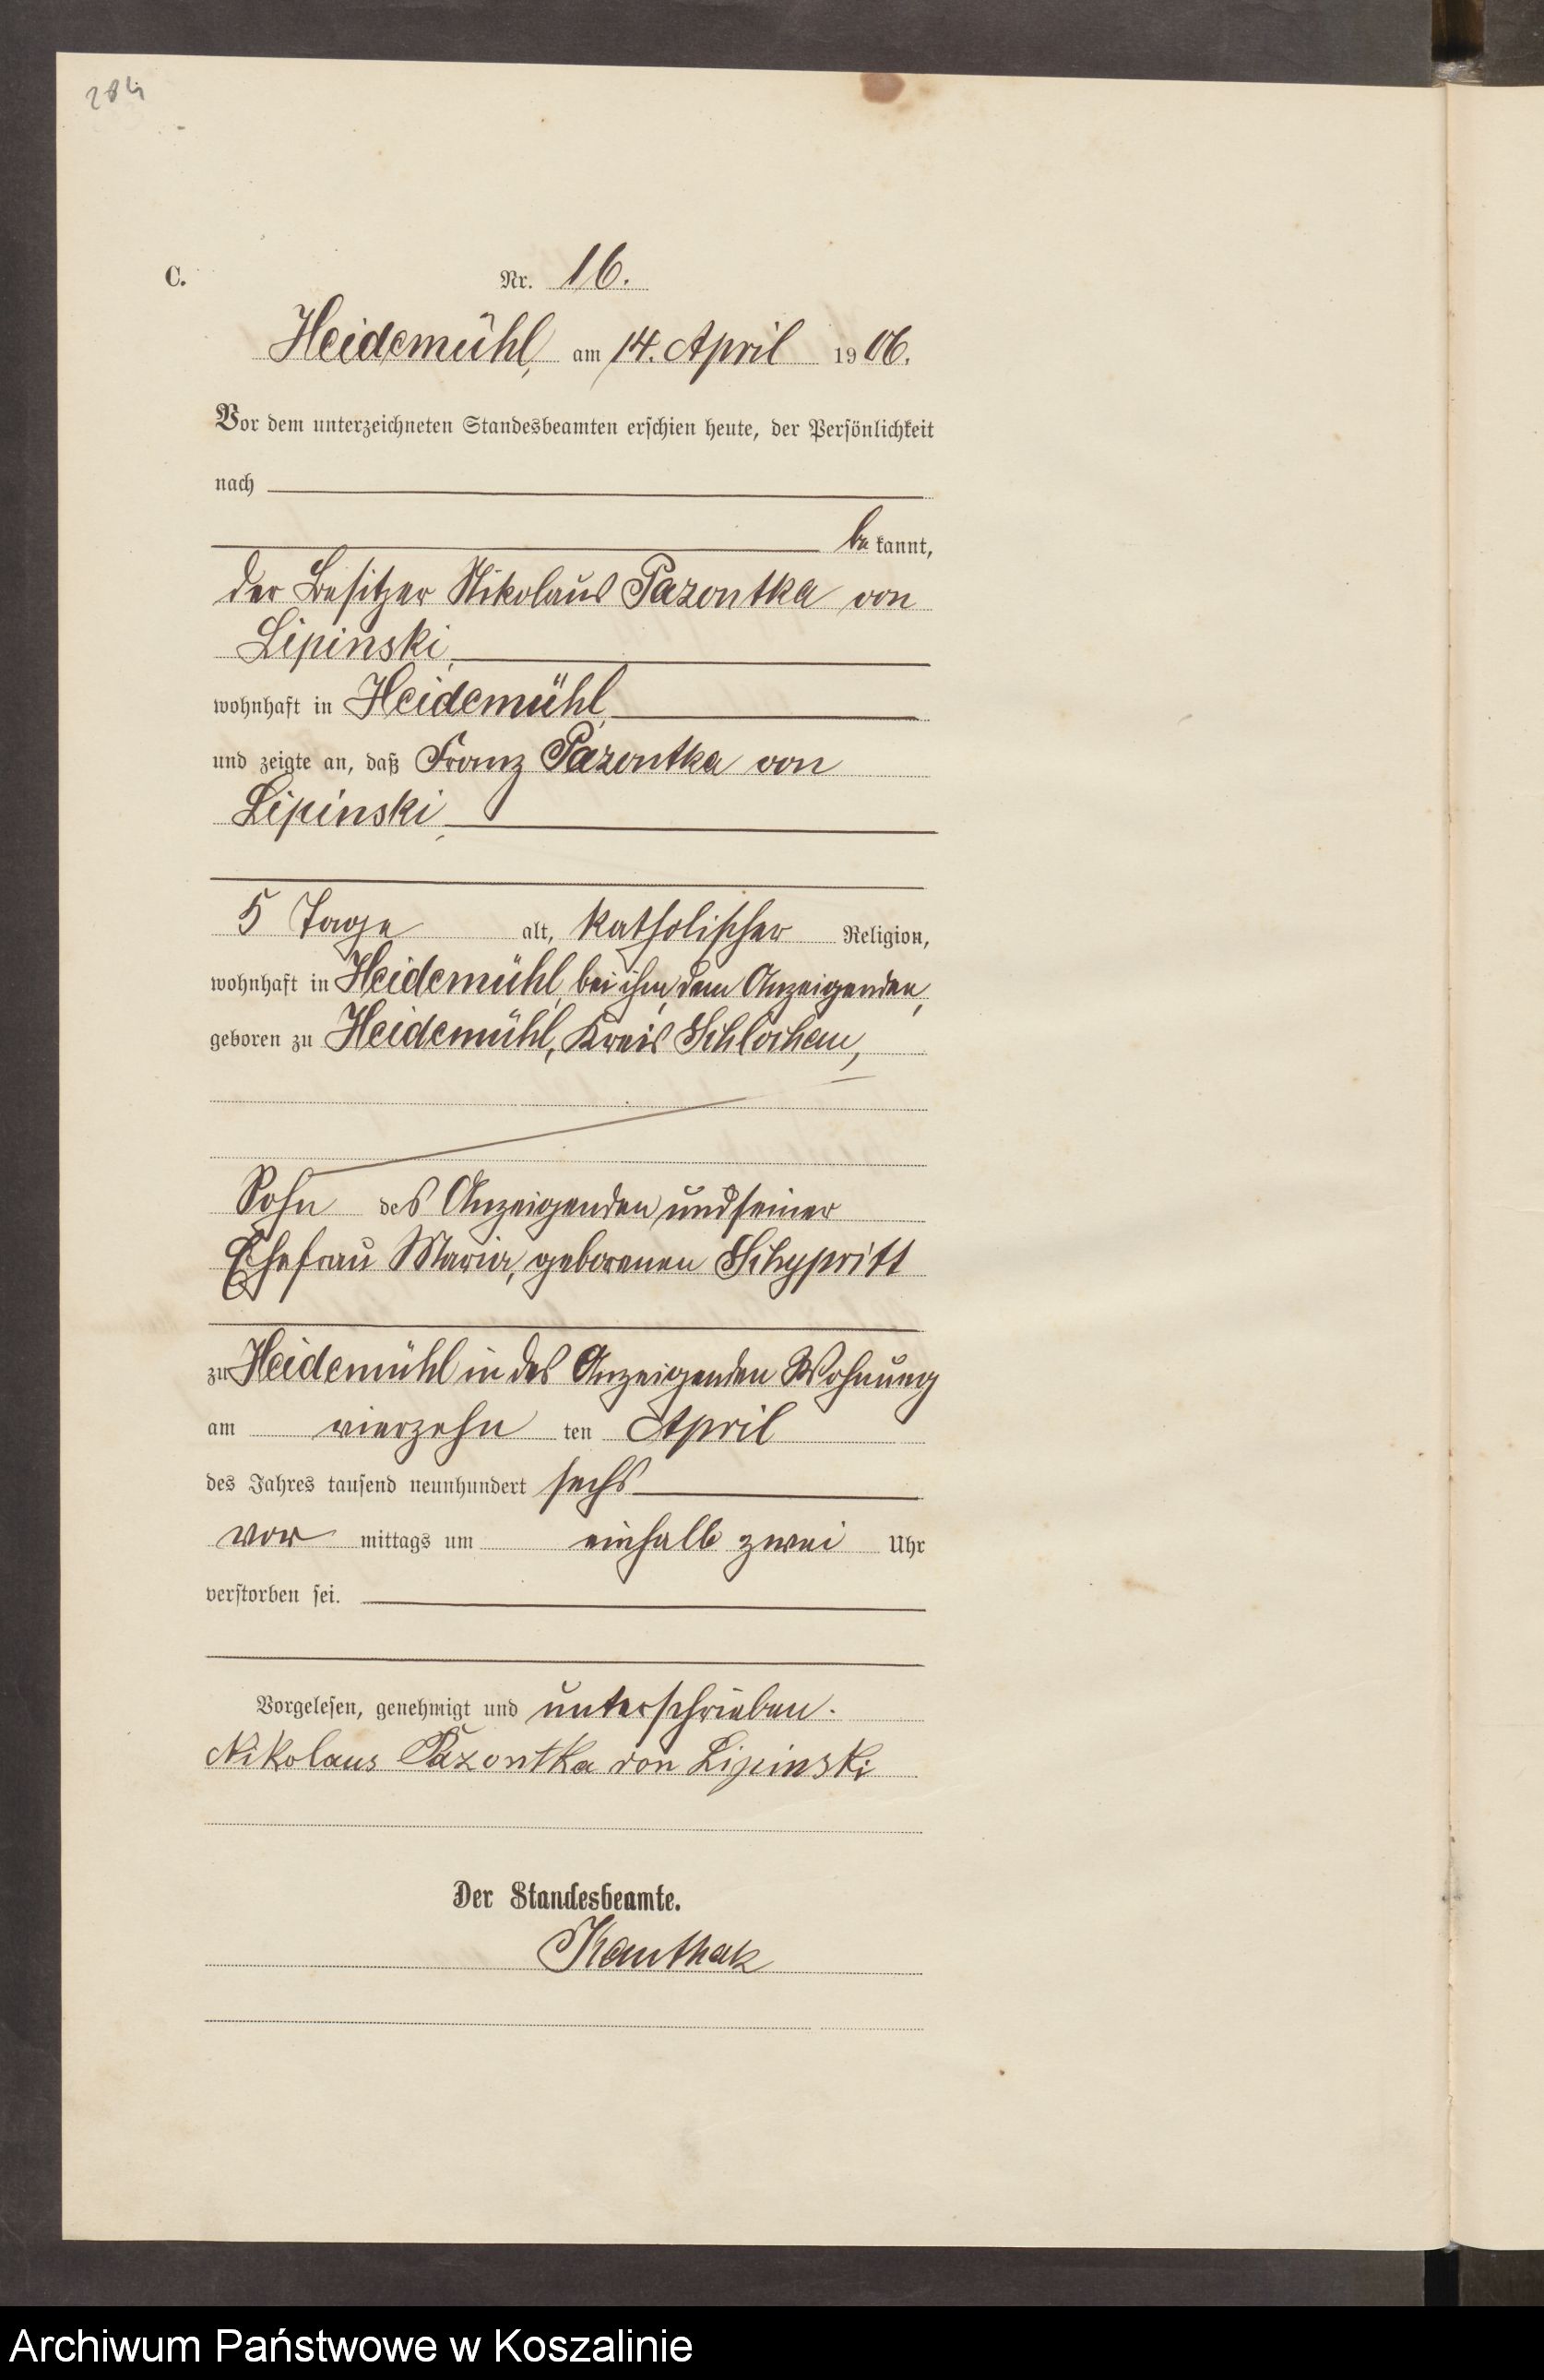 284
C.
Nr. 16.
Heidemühl, am 14. April 1906.
Vor dem unterzeichneten Standesbeamten erschien heute, der Persönlichkeit
nach
be kannt,
der Besitzer Nikolaus Pazontka von
Lipinski,
wohnhaft in Heidemühl,
und zeigte an, daß Franz Pazontka von
Lipinski,
5 Tage alt, katholischer Religion,
wohnhaft in Heidemühl, bei ihm, dem Anzeigenden,
geboren zu Heidemühl, Kreis Schlochau,
Sohn des Anzeigenden und seiner
Ehefrau Maria, geborenen Schypritt
zu Heidemühl in des Anzeigenden Wohnung
am vierzehn ten April
des Jahres tausend neunhundert sechs
vor mittags um einhalb zwei Uhr
verstorben sei.
Vorgelesen, genehmigt und unterschrieben.
Nikolaus Pazontka von Lipinski
Der Standesbeamte.
Kauthak
Archiwum Państwowe w Koszalinie